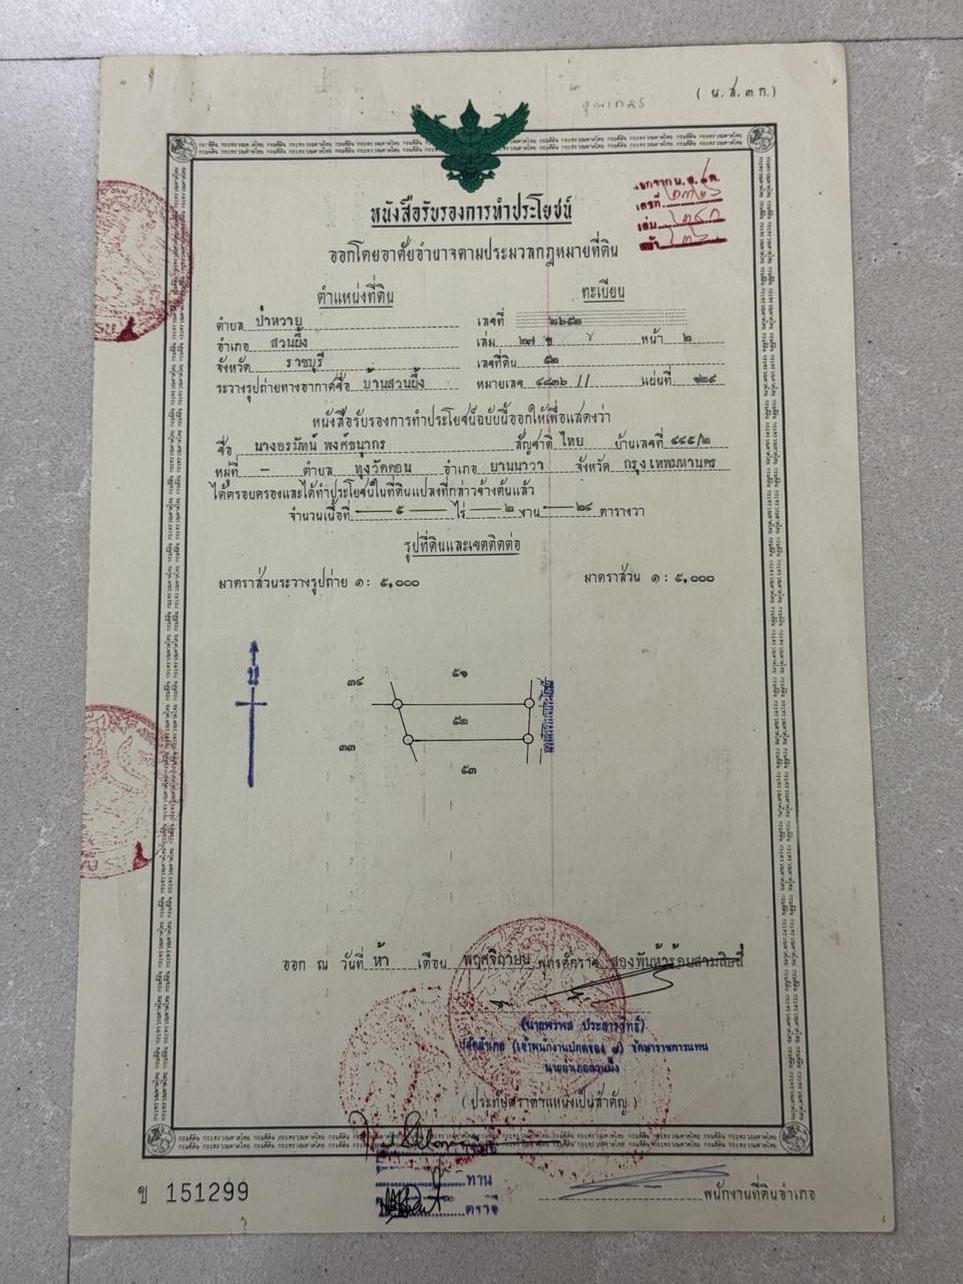 ( น.ส.๓ ก.)
หนังสือรับรองการทำประโยชน์
ออกโดยอาศัยอำนาจตามประมวลกฎหมายที่ดิน
ออกจาก น.ส.
เลขที่
เล่ม
หน้า
ตำแหน่งที่ดิน ทะเบียน
ตำบล ป่าหวาย เลขที่ ๒๖๕๒
อำเภอ สวนผึ้ง เล่ม ๒๗ ข หน้า ๒
จังหวัด ราชบุรี เลขที่ดิน ๕๒
ระวางรูปถ่ายทางอากาศชื่อ บ้านสวนผึ้ง หมายเลข ๔๘๓๖ II แผ่นที่ ๑๒๔
หนังสือรับรองการทำประโยชน์ฉบับนี้ออกให้เพื่อแสดงว่า
ชื่อ นางอรมัทน์ พงศ์ธนากร สัญชาติ ไทย บ้านเลขที่ ๔๔๕/๒
หมู่ที่ – ตำบล ทุ่งวัดดอน อำเภอ ยานนาวา จังหวัด กรุงเทพมหานคร
ได้ครอบครองและได้ทำประโยชน์ในที่ดินแปลงที่กล่าวข้างต้นแล้ว
จำนวนเนื้อที่ ๕ ไร่ ๒ งาน ๒๔ ตารางวา
รูปที่ดินและเขตติดต่อ
มาตราส่วนระวางรูปถ่าย ๑ : ๕,๐๐๐ มาตราส่วน ๑ : ๕,๐๐๐
น
๓๔ ๕๑
๕๒
๓๓
๕๓
ออก ณ วันที่ ห้า เดือน พฤศจิกายน พุทธศักราช สองพันห้าร้อยสามสิบสี่
(นายพรพล ประสารสิทธิ์)
ปลัดอำเภอ (เจ้าพนักงานปกครอง ๗) รักษาราชการแทน
นายอำเภอสวนผึ้ง
( ประทับตราตำแหน่งเป็นสำคัญ )
ทาน
ตรวจ
พนักงานที่ดินอำเภอ
ข 151299